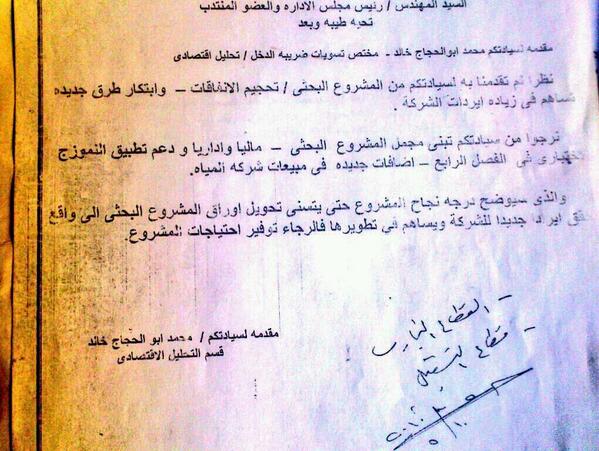 السيد المهندس / رئيس مجلس الاداره والعضو المنتدب
تحيه طيبه وبعد
مقدمه لسيادتكم محمد ابوالحجاج خالد - مختص تسويات ضريبه الدخل / تحليل اقتصادى
نظرا لم تقدمنا به لسيادتكم من المشروع البحثى / تحجيم الانفاقات – وابتكار طرق جديده
تساهم فى زياده ايردات الشركة .
نرجوا من سيادتكم تبنى مجمل المشروع البحثى – ماليا واداريا و دعم تطبيق النموزج
لاختيارى فى الفصل الرابع – اضافات جديده فى مبيعات شركه المياه.
والذى سيوضح درجه نجاح المشروع حتى يتسنى تحويل اوراق المشروع البحثى الى واقع
جديدا للشركة ويساهم فى تطويرها فالرجاء توفير احتياجات المشروع.
مقدمه لسيادتكم / محمد ابو الحجاج خالد
قسم التحليل الاقتصادى